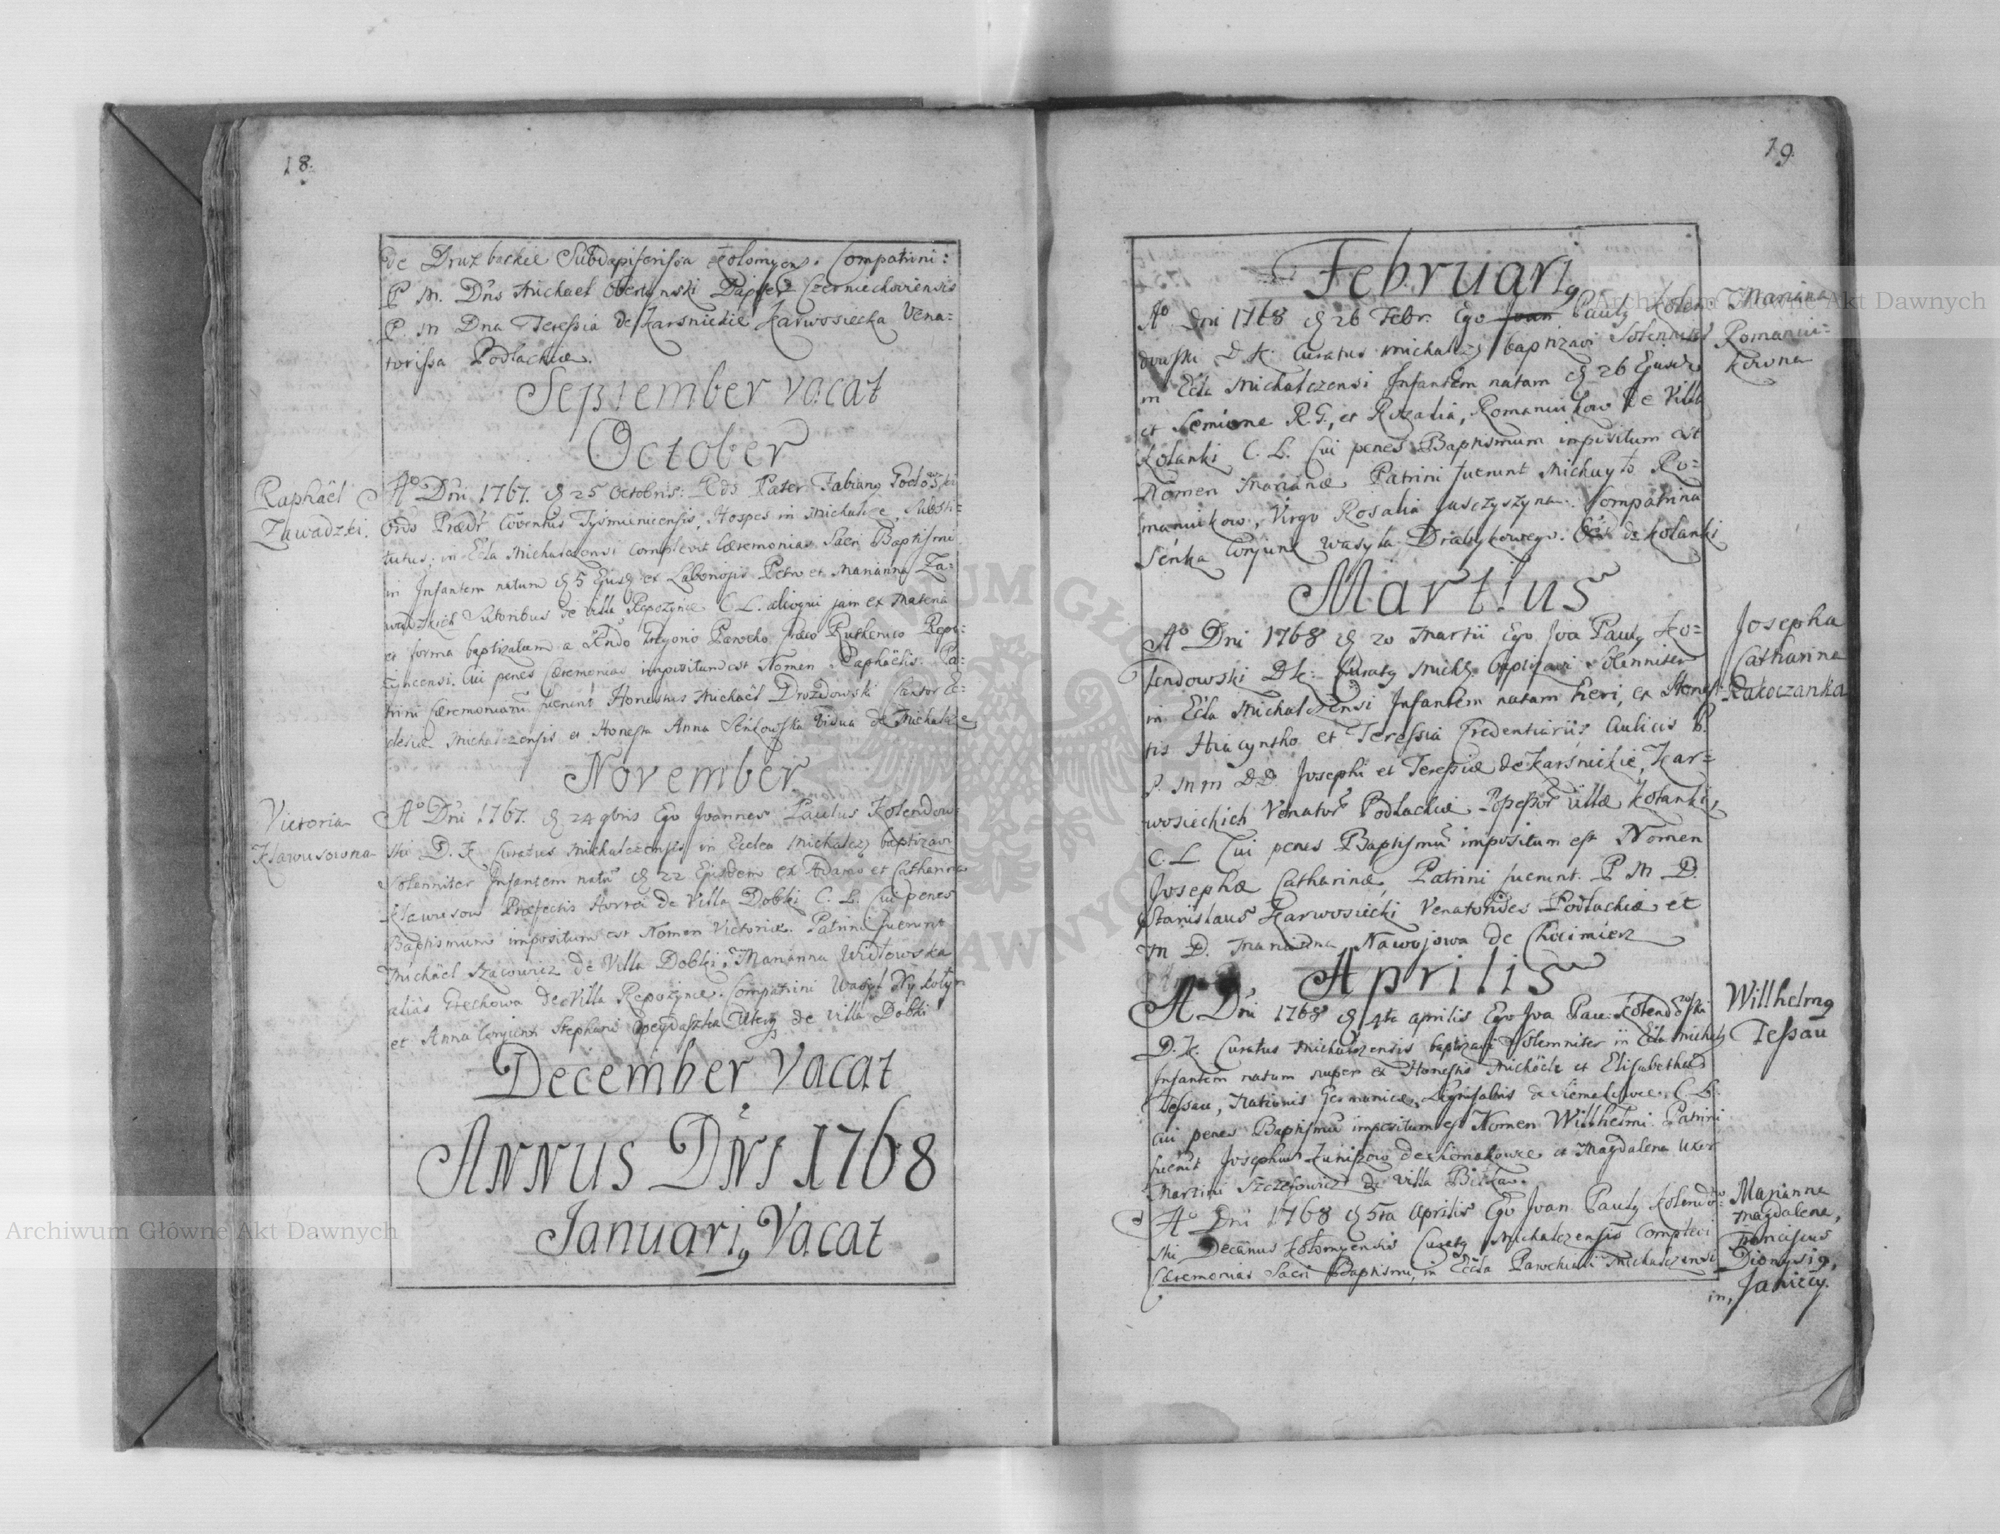 18.
de Druzbackie Subdapiferissa Kolomyen. Compatrini:
P. M. Dn̄s Michael Obertynski Dapifer Czerniechoviensis
P. M. Dna Teressia de Karsnickie Karwosiecka Vena-
torissa Podlachiæ.
September vacat
October
Raphaël
Zawadzki.
Aº Dn̄i 1767. 25 Octobris: Rds Pater Fabiany
Ords Prædt Coñentus Tysmienicensis, Hospes in Michalcze, Substi-
tutus, in Ecla Michalczensi complevit Cæremonias Sacri Baptismi
in Infantem natum 5 Ejusd ex Laboriosis Petro et Marianna Za-
wadzkich Sutoribus de Villa Repozynce C. L. alioqui jam ex Materia
et forma baptizatum a Rñdo Hrehorio Parocho Græco Rutheno Repo-
zyncensi. Cui penes cæremonias impositum est Nomen Raphaëlis. Pa-
trini Cæremoniarū fuerunt Honestus Michaël Drozdowski Cantor Ec-
clesiæ Michalczensis et Honesta Anna Vidua de Michalcze
November
Victoria
Klawusowna
Aº Dn̄i 1767. 24 9bris Ego Joannes Paulus Kolendow-
ski D. K. Curatus Michalczensis in Ecclea Michalcz baptizavi
Solenniter Infantem natū 22 Ejusdem ex Adamo et Catharina
Klawusow Præfectis Horrei de Villa Dobki C. L. Cui penes
Baptismum impositum est Nomen Victoriæ. Patrini fuerunt
Michaël Szacowicz de Villa Dobki, Marianna Widlowska
aliàs Grechowa de Villa Repozynce. Compatrini Wasyl Nykolyn
et Anna Conjunx Stephani de Villa Dobki
December Vacat
Annus Dn̄i 1768
Januari9 Vacat
19.
Februari9
Marianna
Romaniu-
kowna
Aº Dni 1768 26 Febr. Ego Joan Pauly Kolen-
dowski D. K. Curatus Michalczy baptizavi Solenniter
in Ecla Michalczensi Infantem natam 26 Ejusd
ex Semione R. G., et Rozalia, Romaniukow de Villa
Kolanki C. L. Cui penes Baptismum impositum est
Nomen Marianæ Patrini fuerunt Michayło Ro-
maniukow, Virgo Rosalia Juszczyszyna. Compatrina
Senka Conjunx Wasyla Drabykowego. de Kolanki
Martius
Josepha
Catharina
Rakoczanka
Aº Dni 1768 20 Martii Ego Joa Pauly Ko-
lendowski D. K. Curaty Mich baptisavi Solenniter
in Ecla Michalczensi Infantem natam heri, ex Hones-
tis Hiacyntho et Teressia Credentiariis Aulicis
P. M m D D. Josephi et Teressiæ de Karsnickie, Kar-
wosieckich Venator Podlachiæ Possessor Villæ Kolanki,
C. L Cui penes Baptismū impositum est Nomen
Josephæ Catharinæ, Patrini fuerunt. P M D.
Stanislaus Karwosiecki Venatorides Podlachiæ et
M D. Marianna Nawojowa de Chocimierz
Aprilis
Willhelm9
Tessau
A Dn̄i 1768 4ta Aprilis Ego Joa Pau: Kolendowski
D. K. Curatus Michalczensis baptizavi Solemniter in Ecla Michalz
Infantem natum nuper ex Honestis Michaële et Elisabetha
Tessau, Nationis Germanicæ, de C. L.
Cui penes Baptismū impositum est Nomen Willhelmi. Patrini
fuerūt Josephus de et Magdalena uxor
Martini Szczesowicz de Villa
Marianna
Magdalena,
Franciscus
Dionysi9,
Janiccy.
Aº Dni 1768 5ta Aprilis Ego Joan Pauly Kolendow-
ski Decanus Kolomyensis Curaty Michalczensis Complevi
Cæremonias Sacri Baptismi, in Eccla Parochiali Michalczensi
in,
Archiwum Główne Akt Dawnych
Archiwum Główne Akt Dawnych